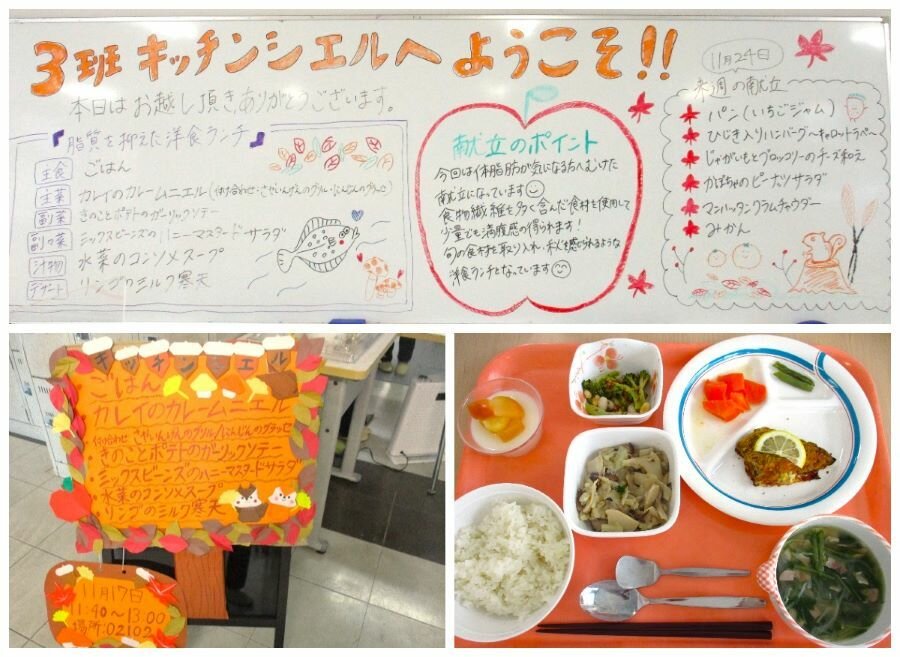 3班 キッチンシエルへ ようこそ!!
本日はお越し頂き、ありがとうございます。
『脂質を抑えた洋食ランチ』
主食 ごはん
主菜 カレイのカレームニエル(付け合わせ・さやいんげんのグリル・にんじんのグラッセ)
副菜 きのことポテトのガーリックソテー
副々菜 ミックスビーンズのハニーマスタードサラダ
汁物 水菜のコンソメスープ
デザート リンゴのミルク寒天
献立のポイント
今回は体脂肪が気になる方へむけた
献立になっています
食物繊維を多く含んだ食材を使用して
少量でも満腹感の得られます!
旬の食材も取り入れ、秋を感じられるような
洋食ランチとなっています
11月24日
来週の献立
パン(いちごジャム)
ひじき入りハンバーグ〜キャロットラペ〜
じゃがいもとブロッコリーのチーズ和え
かぼちゃのピーナッツサラダ
マンハッタンクラムチャウダー
みかん
キッチンシエル
ごはん
カレイのカレームニエル
付け合わせ さやいんげんのグリル/にんじんのグラッセ
きのことポテトのガーリックソテー
・ミックスビーンズのハニーマスタードサラダ
・水菜のコンソメスープ
・リンゴのミルク寒天
11月17日
11:40〜13:00
場所:02102